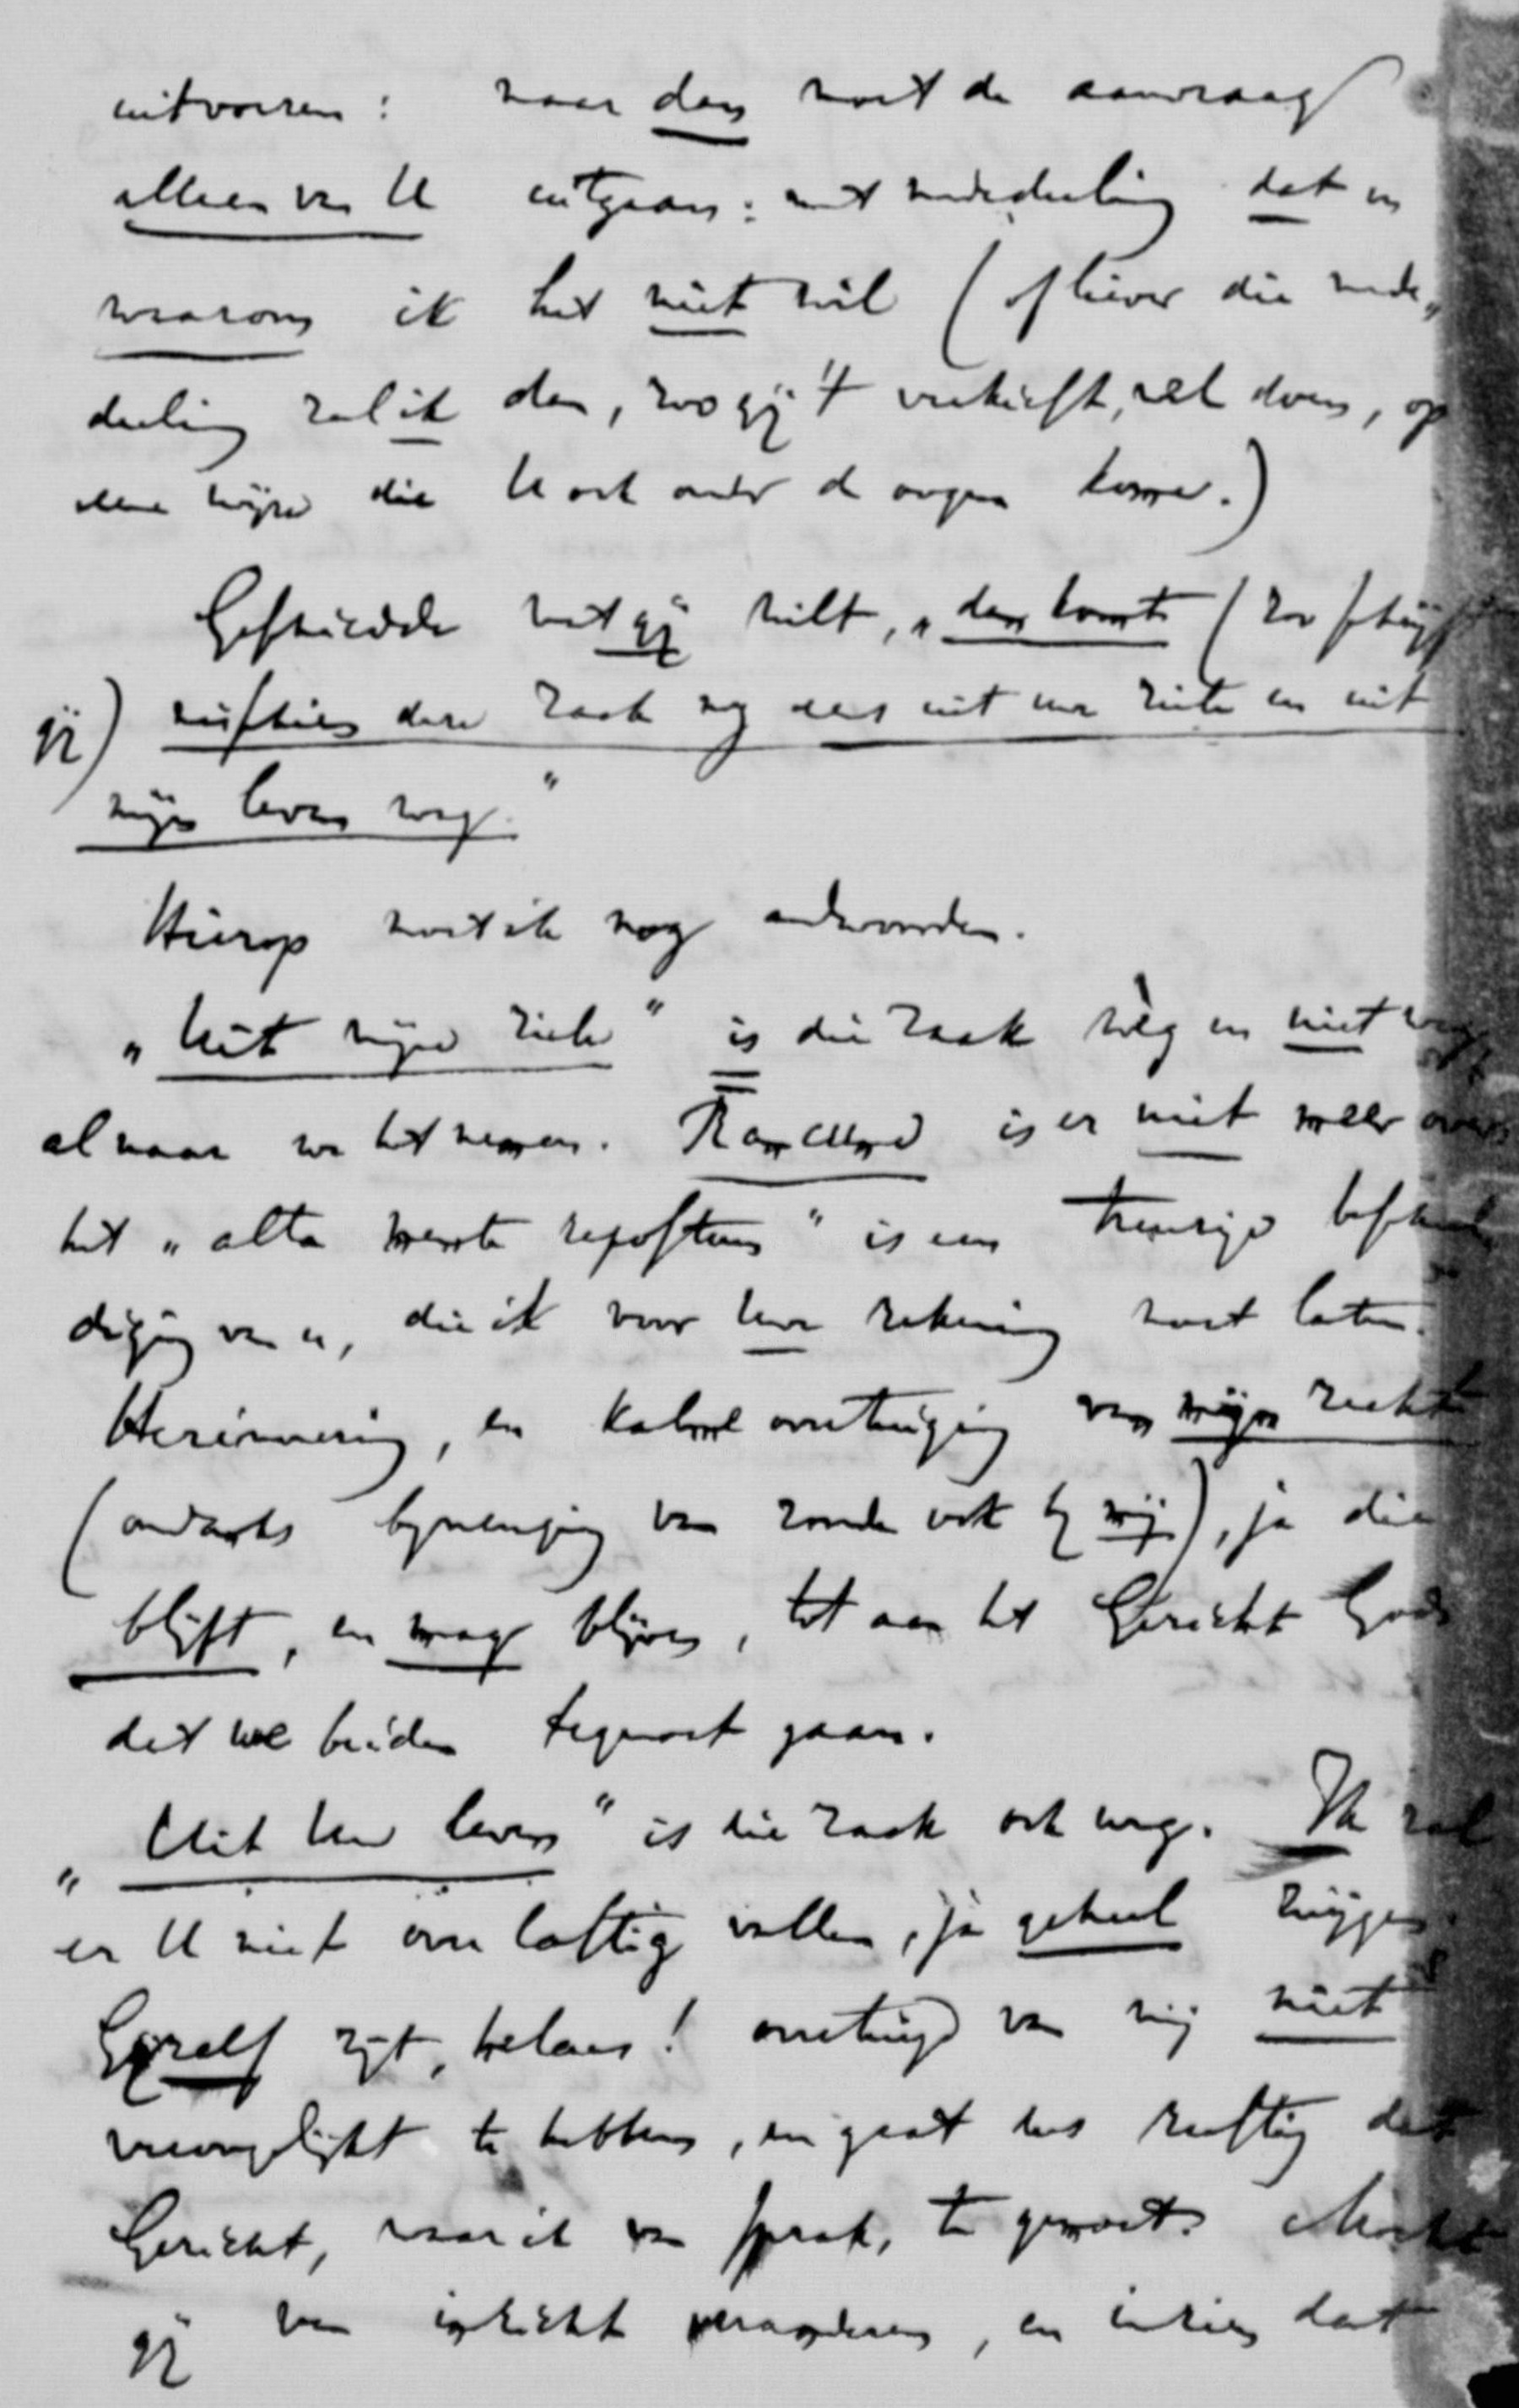 uitvoeren: maar dan moet de aanvraag
alleen van U uitgaan: met mededeeling dat en
waarom ik het niet wil (of liever die mede„
deeling zal ik dan, zoo gij 't verkiest, zelf doen, op
eene wijze die U ook onder de oogen kome.)
Geschiedde wat gij wilt, „dan komt (zoo schrijft
gij) misschien deze zaak nog eens uit uwe ziele en uit
mijn leven weg."
Hierop moet ik nog antwoorden.
„Uit mijne ziele" is die zaak wèg en niet weg,
al naar we het nemen. Rancune is er niet meer over:
het „alta mente repostum" is een treurige beschul
diging van u, die ik voor uwe rekening moet laten.
Herinnering, en kalme overtuiging van mijn recht
(ondanks bijmenging van zonde ook bij mij), ja die
blijft, en mag blijven, tot aan het Gericht Gods
dat we beiden tegemoet gaan.
„Uit uw leven" is die zaak ook weg. Ik zal
er U niet over lastig vallen, ja geheel zwijgen.
Gijzelf zijt, helaas! overtuigd van mij niet
verongelijkt te hebben, en gaat dus rustig dat
Gericht, waar ik van sprak, te gemoet. Mocht
gij van inzicht veranderen, en inzien dat